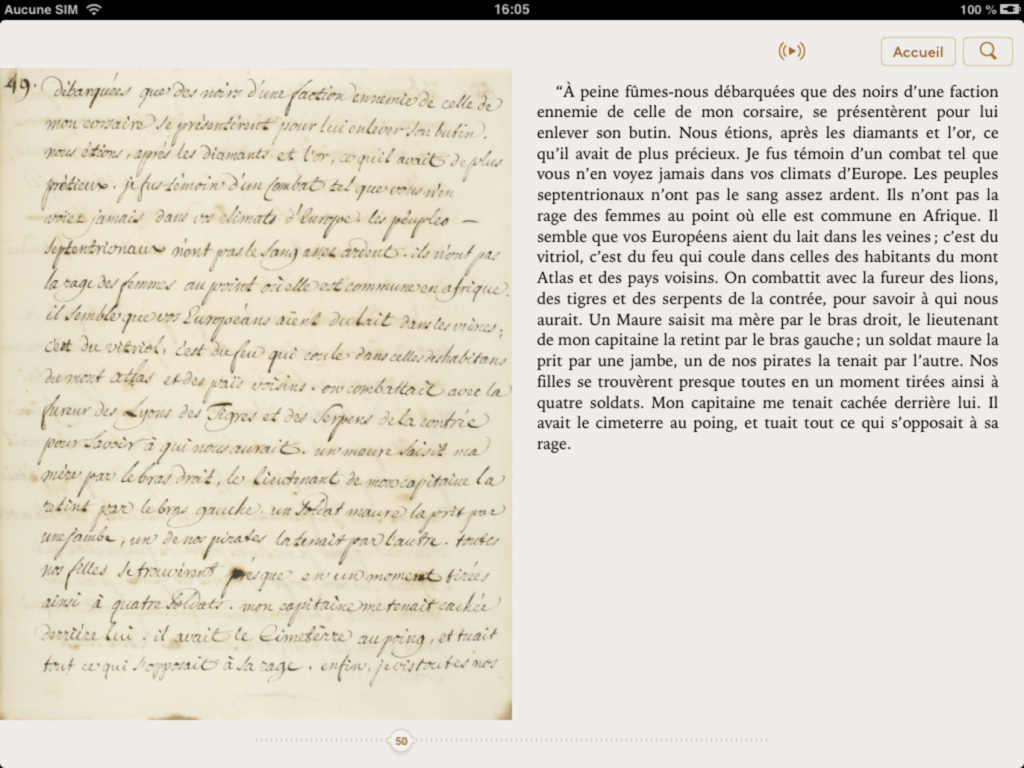 Aucune SIM
16:05
100 %
Accueil
49.
débarquées que des noirs d'une faction ennemie de celle de
mon corsaire se présentèrent pour lui enlever son butin.
nous étions, après les diamants et l'or, ce quil avait de plus
prétieux. je fus témoin d'un combat tel que vous n'en
voiez jamais dans vos climats d'Europe les peuples —
septentrionaux n'ont pas le sang assez ardent. ils n'ont pas
la rage des femmes au point où elle est commune en afrique.
il semble que vos Européans aient du lait dans les veines;
c'est du vitriol, c'est du feu qui coule dans celles des habitans
du mont atlas et des païs voisins. on combattait avec la
fureur des Lyons des Tigres et des Serpens de la contrée
pour savoir à qui nous aurait. un maure saisit ma
mère par le bras droit, le lieutenant de mon capitaine la
retint par le bras gauche. un soldat maure la prit par
une jambe, un de nos pirates la tenait par l'autre. toutes
nos filles se trouvèrent presque en un moment tirées
ainsi à quatre soldats. mon capitaine me tenait cachée
derrière lui. il avait le Cimeterre au poing, et tuait
tout ce qui s'opposait à sa rage. enfin, je vis toutes nos
“À peine fûmes-nous débarquées que des noirs d’une faction
ennemie de celle de mon corsaire, se présentèrent pour lui
enlever son butin. Nous étions, après les diamants et l’or, ce
qu’il avait de plus précieux. Je fus témoin d’un combat tel que
vous n’en voyez jamais dans vos climats d’Europe. Les peuples
septentrionaux n’ont pas le sang assez ardent. Ils n’ont pas la
rage des femmes au point où elle est commune en Afrique. Il
semble que vos Européens aient du lait dans les veines ; c’est du
vitriol, c’est du feu qui coule dans celles des habitants du mont
Atlas et des pays voisins. On combattit avec la fureur des lions,
des tigres et des serpents de la contrée, pour savoir à qui nous
aurait. Un Maure saisit ma mère par le bras droit, le lieutenant
de mon capitaine la retint par le bras gauche ; un soldat maure la
prit par une jambe, un de nos pirates la tenait par l’autre. Nos
filles se trouvèrent presque toutes en un moment tirées ainsi à
quatre soldats. Mon capitaine me tenait cachée derrière lui. Il
avait le cimeterre au poing, et tuait tout ce qui s’opposait à sa
rage.
50